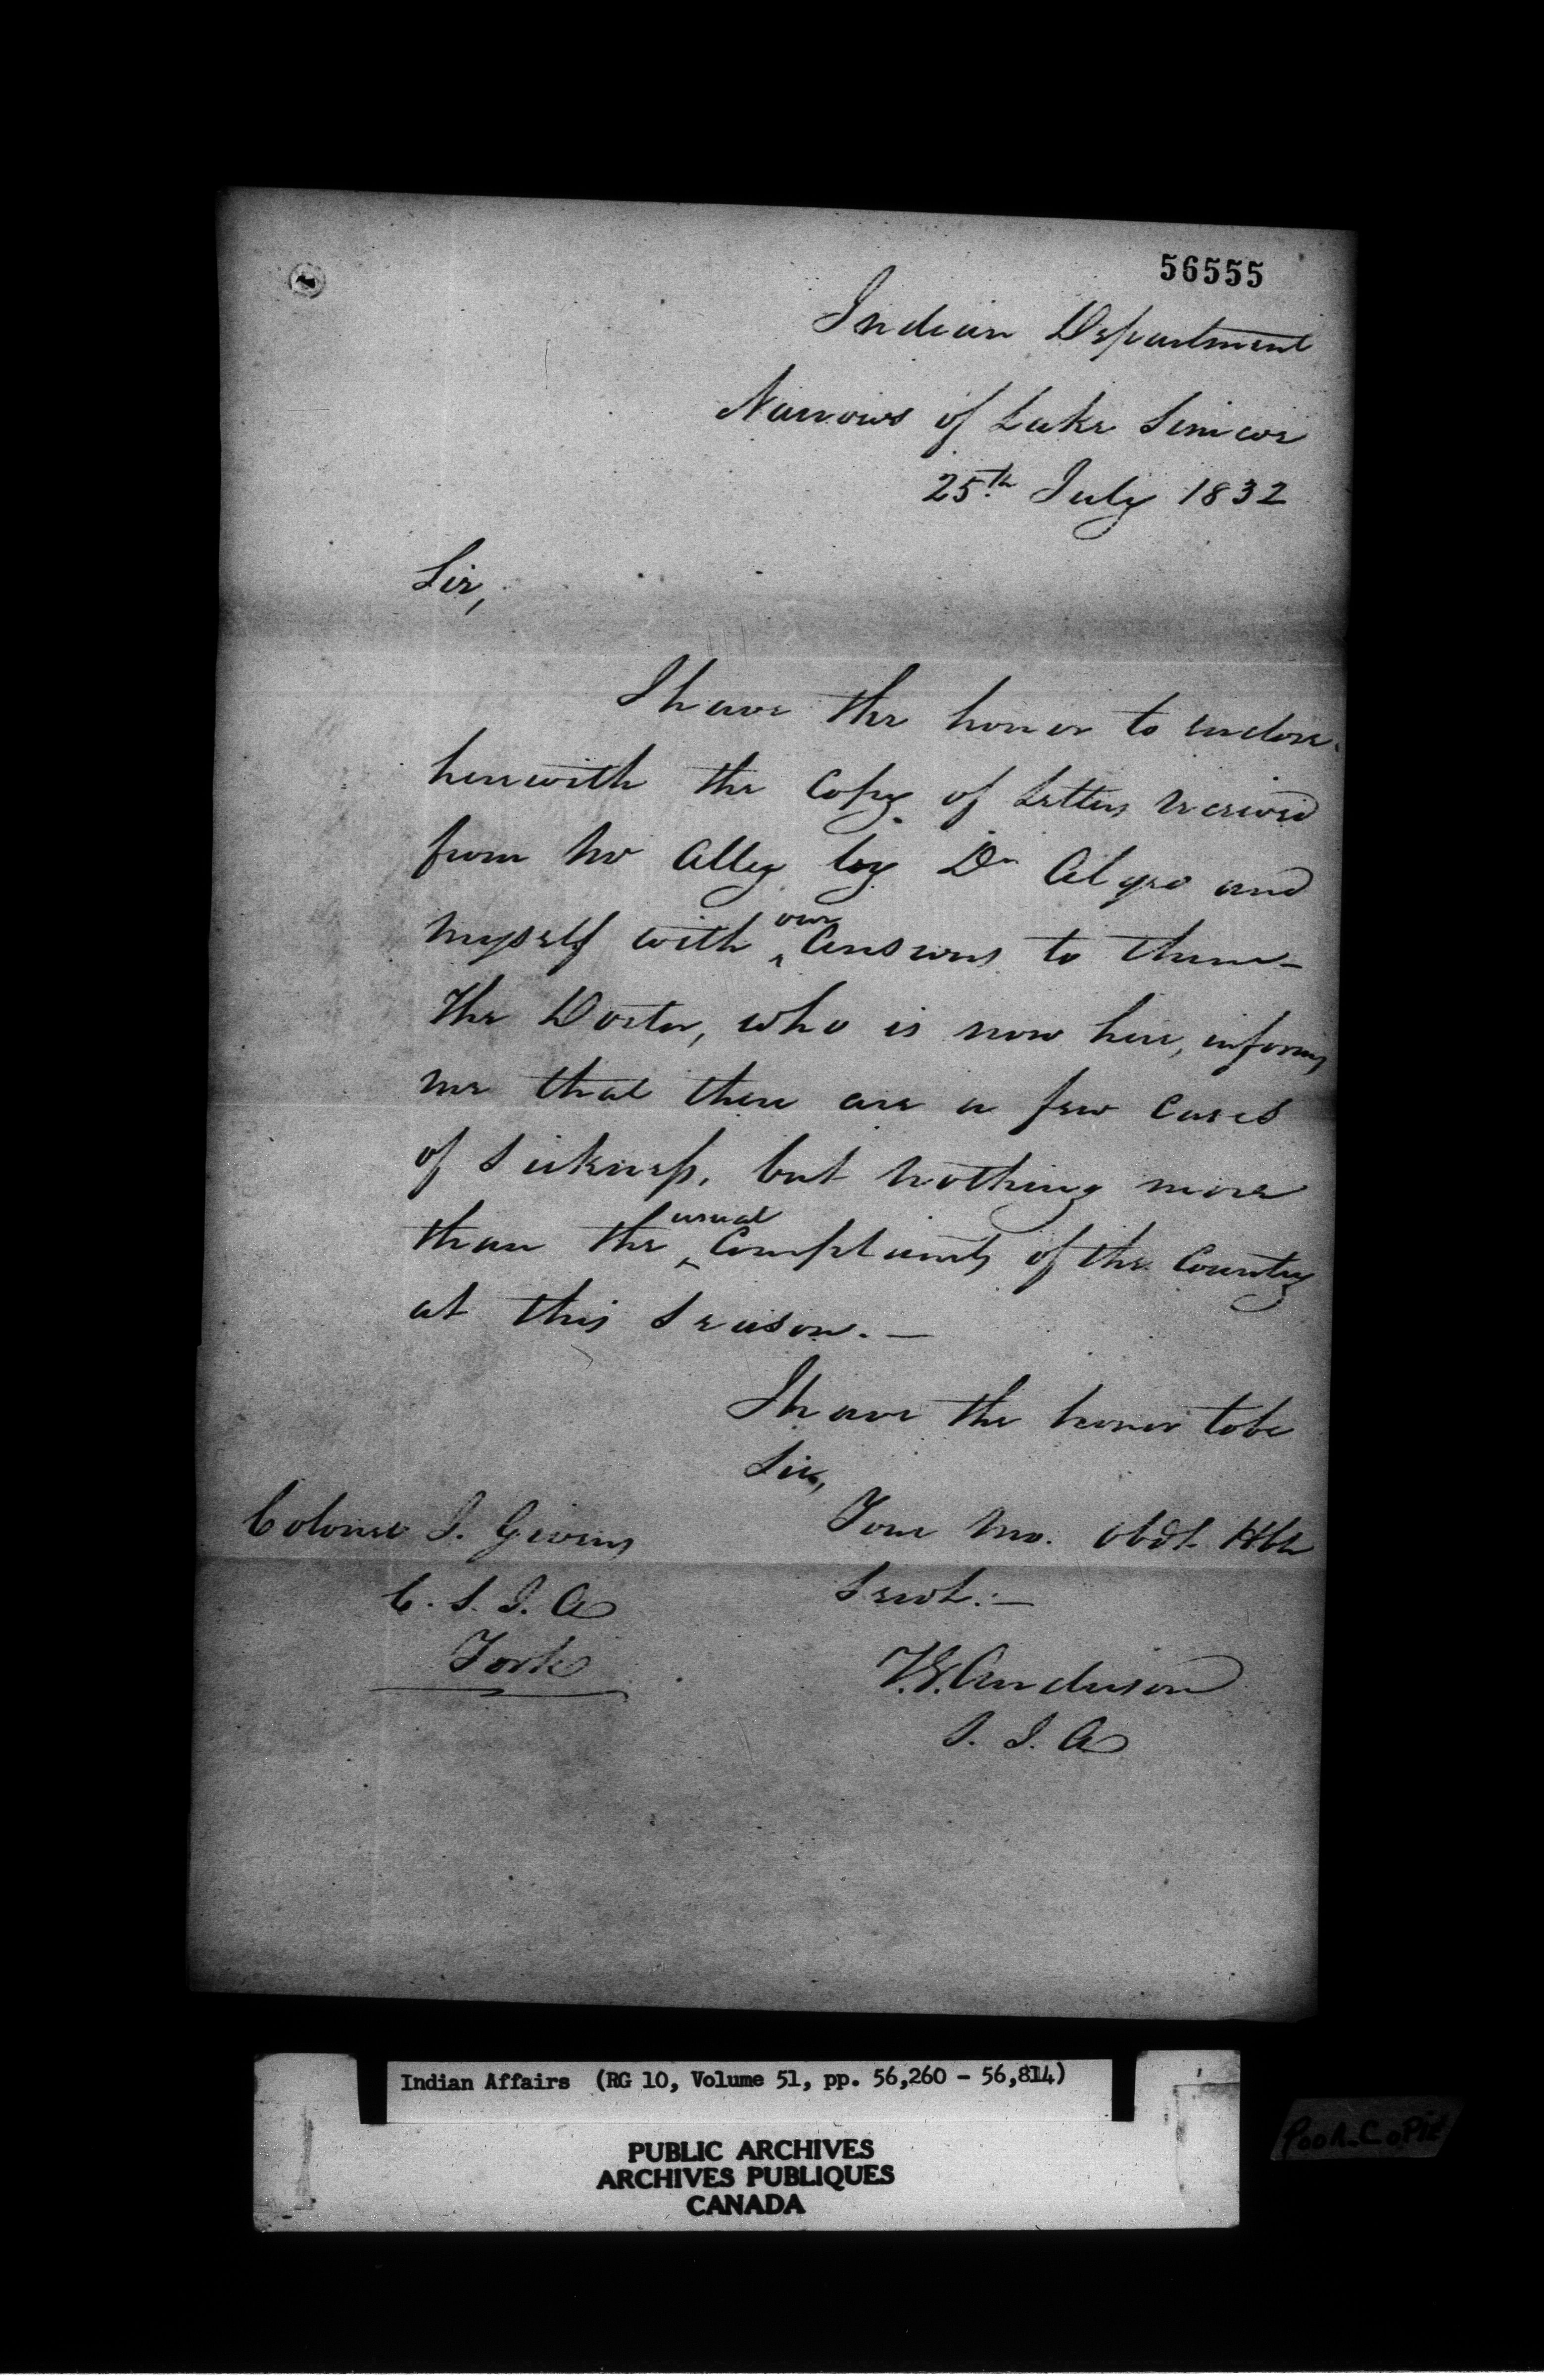 56555
Indian Department
Narrows of Lake Simcoe
25th July 1832
Sir,
I have the honor to enclose
herewith the Copy of Letters received
from Mr Alley by Dr and
myself with our Answers to them –
The Doctor, who is now here, informs
me that there are a few Cases
of Sickness, but nothing more
than the usual Complaints of the Country
at this Season. —
I have the honor to be
Sir,
Your Mo. Obdt. Hble
Servt. —
T.G. Anderson
S. I. A
Colonel J. Givins
C. S. I. A
York
Indian Affairs (RG 10, Volume 51, pp. 56,260 - 56,814)
PUBLIC ARCHIVES
ARCHIVES PUBLIQUES
CANADA
POOR COPIE